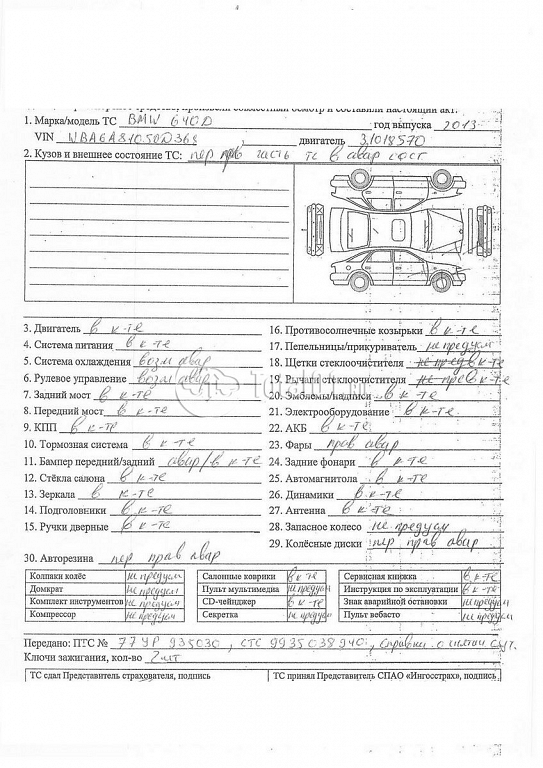 1. Марка/модель ТС BMW 640D год выпуска 2013
VIN WBA6A81050D368 , двигатель 31018570
2. Кузов и внешнее состояние ТС: пер прав часть тс в авар сост
3. Двигатель в к-те
16. Противосолнечные козырьки в к-те
4. Система питания в к-те
17. Пепельницы/прикуриватель не предусм
5. Система охлаждения возм авар
18. Щетки стеклоочистителя в к-те
6. Рулевое управление возм авар
19. Рычаги стеклоочистителя в к-те
7. Задний мост в к-те
20. Эмблемы/надписи в к-те
8. Передний мост в к-те
21. Электрооборудование в к-те
9. КПП в к-те
22. АКБ в к-те
10. Тормозная система в к-те
23. Фары прав авар
11. Бампер передний/задний авар/в к-те
24. Задние фонари в к-те
12. Стёкла салона в к-те
25. Автомагнитола в к-те
13. Зеркала в к-те
26. Динамики в к-те
14. Подголовники в к-те
27. Антенна в к-те
15. Ручки дверные в к-те
28. Запасное колесо не предусм
29. Колёсные диски пер прав авар
30. Авторезина пер прав авар
Колпаки колёс не предусм Салонные коврики в к-те Сервисная книжка в к-те
Домкрат не предусм Пульт мультимедиа не предусм Инструкция по эксплуатации в к-те
Комплект инструментов не предусм CD-чейнджер в к-те Знак аварийной остановки не предусм
Компрессор не предусм Секретка не предусм Пульт вебасто не предусм
Передано: ПТС № 77УР 935030, СТС 9935038940, Справки о
Ключи зажигания, кол-во 2 шт
ТС сдал Представитель страхователя, подпись ТС принял Представитель СПАО «Ингосстрах», подпись